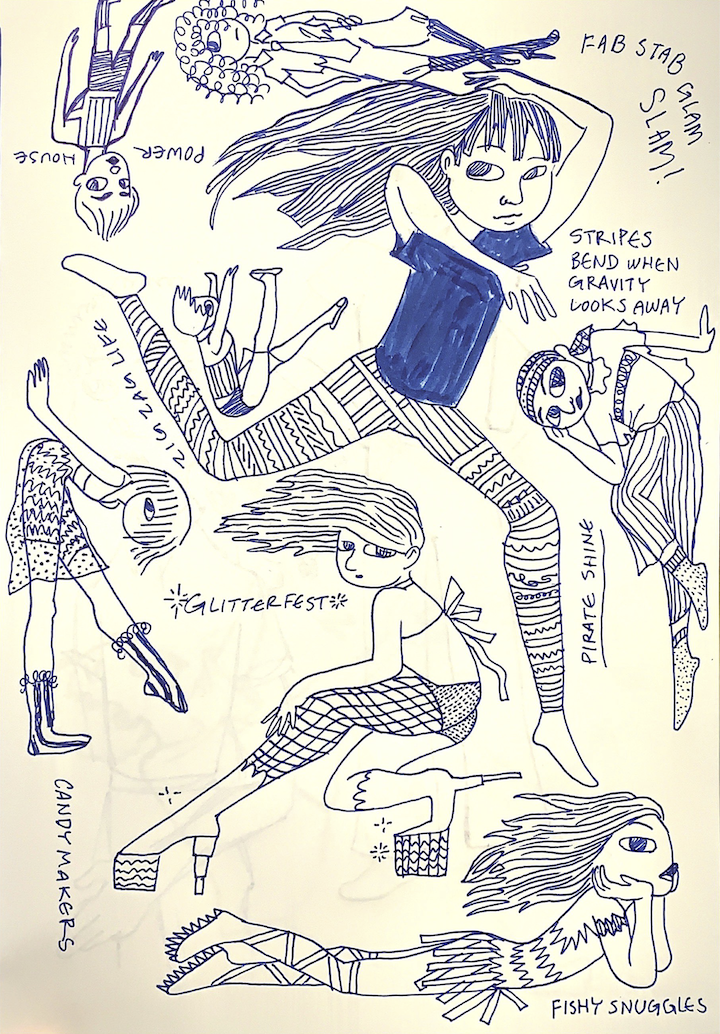 FAB STAB
GLAM
SLAM!
POWER
HOUSE
STRIPES
BEND WHEN
GRAVITY
LOOKS AWAY
ZIG ZAG LIFE
PIRATE SHINE
GLITTERFEST
CANDY MAKERS
FISHY SNUGGLES